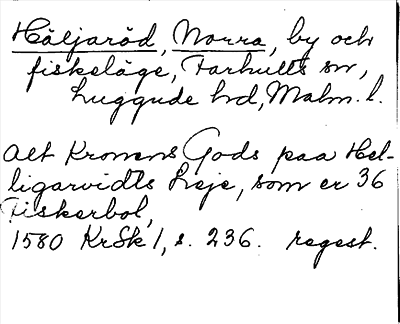 Häljaröd, Norra, by och
fiskeläge, Farhults sn,
Luggude hd, Malm. l.
alt Kronens Gods paa Hel-
ligarvidts Leje, som er 36
Fiskerbol,
1580 KrSk 1, s. 236. regest.